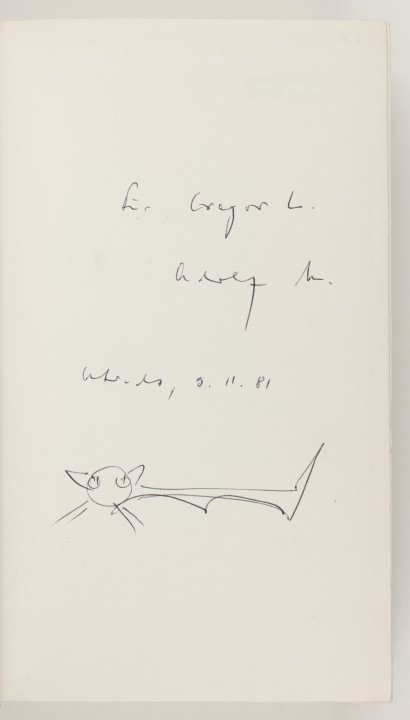 für Gregor L.
Adolf M.
9. 11. 81